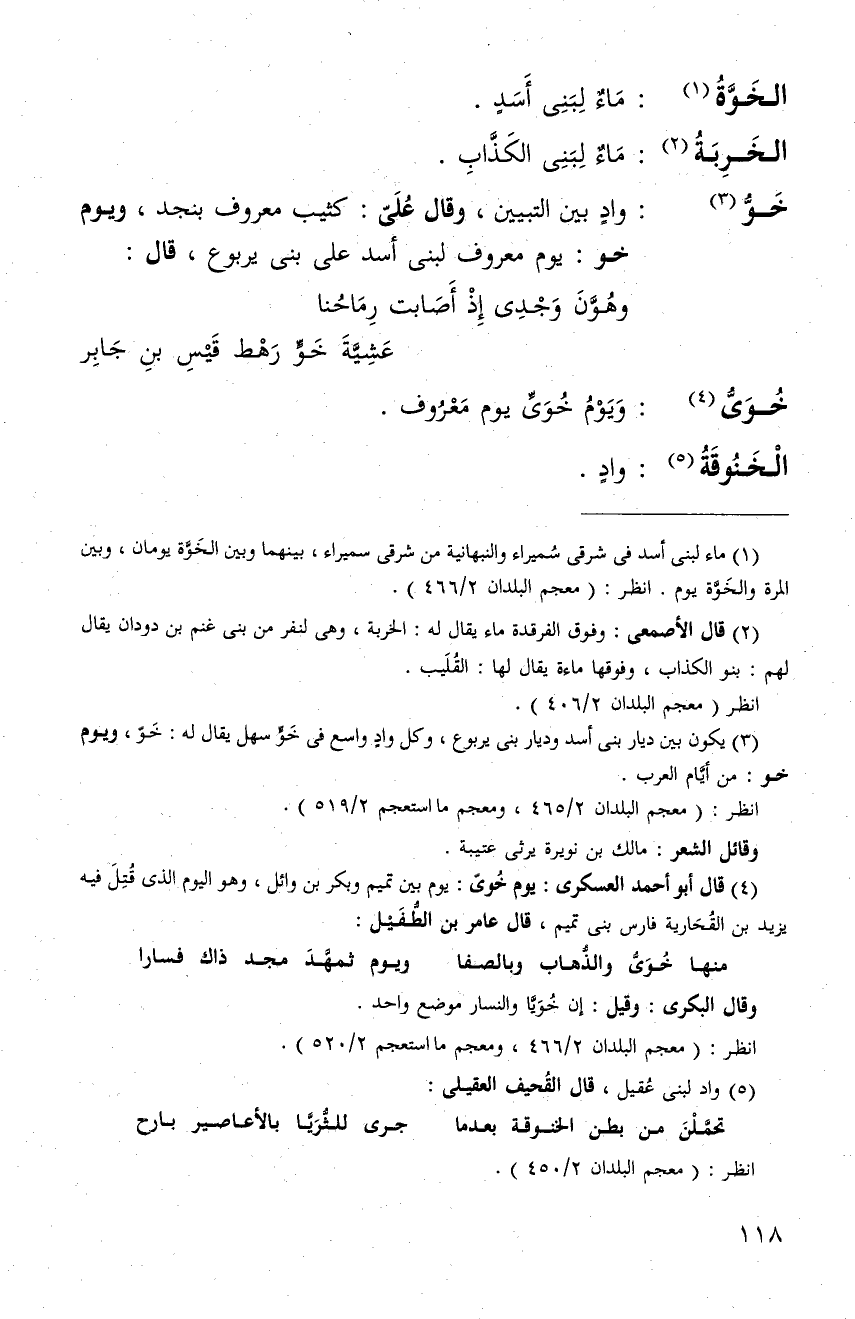 الـخَـوَّةُ (١) : مَاءٌ لِبَنِى أَسَدٍ .
الـخَـرِبَـةُ (٢) : مَاءٌ لِبَنِى الكَذَّابِ .
خَـوُّ (٣) : وادٍ بين التبيين ، وقال عُلَىّ : كثيب معروف بنجد ، ويـوم
خـو : يوم معروف لبنى أسد على بنى يربوع ، قال :
وهُـوَّنَ وَجْـدِى إِذْ أَصَابت رِمَاحُنا
عَشِيَّةَ خَـوٍّ رَهْط قَيْسِ بنِ جَابِر
خُـوَىُّ (٤) : وَيَوْمُ خُوَىٍّ يوم مَعْرُوف .
الْخَـنُوقَةُ (٥) : وادٍ .
(١) ماء لبنى أسد فى شرقى سُميراء والنبهانية من شرقى سميراء ، بينهما وبين الخَوَّة يومان ، وبين
المرة والخَوَّة يوم . انظر : ( معجم البلدان ٤٦٦/٢ ) .
(٢) قال الأصمعى : وفوق الفرقدة ماء يقال له : الخربة ، وهى لنفر من بنى غنم بن دودان يقال
لهم : بنو الكذاب ، وفوقها ماءة يقال لها : القُلَيب .
انظر ( معجم البلدان ٤٠٦/٢ ) .
(٣) يكون بين ديار بنى أسد وديار بنى يربوع ، وكل وادٍ واسع فى خَوٍّ سهل يقال له : خَوّ ، ويـوم
خـو : من أيَّام العرب .
انظر : ( معجم البلدان ٤٦٥/٢ ، ومعجم ما استعجم ٥١٩/٢ ) .
وقائل الشعر : مالك بن نويرة يرثى عتيبة .
(٤) قال أبو أحمد العسكرى : يوم خُوىّ : يوم بين تميم وبكر بن وائل ، وهو اليوم الذى قُتِلَ فيه
يزيد بن القُحَارية فارس بنى تميم ، قال عامر بن الطُّفَيْـل :
منهـا خُـوَىُّ والذُّهـاب وبالصـفا ويـوم ثمهَّـدَ مجـد ذاك فسـارا
وقال البكرى : وقيل : إن خُوَيًّا والنسار موضع واحد .
انظر : ( معجم البلدان ٤٦٦/٢ ، ومعجم ما استعجم ٥٢٠/٢ ) .
(٥) واد لبنى عُقيل ، قال القُحيف العقيلى :
تحمَّـلْنَ مـن بطـن الخنـوقـة بعـدما جـرى للـثُّرَيَّـا بالأعـاصـير بـارح
انظر : ( معجم البلدان ٤٥٠/٢ ) .
١١٨